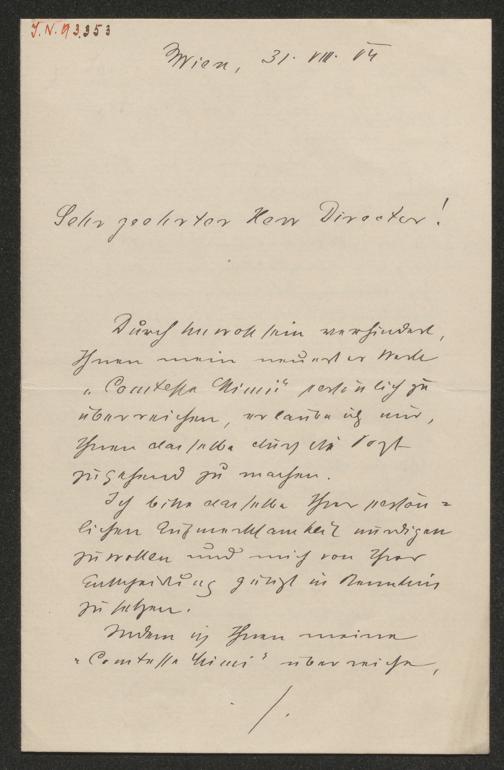 J.N. 93.353
Wien, 31. VIII. 04
Sehr geehrter Herr Director!
Durch Unwohlsein verhindert,
Ihnen mein neuestes Werk
„Comtesse Mimi“ persönlich zu
überreichen, erlaube ich mir,
Ihnen dasselbe durch die Post
zugehend zu machen.
Ich bitte dasselbe Ihrer persön=
lichen Aufmerksamkeit würdigen
zu wollen und mich von Ihrer
Entscheidung gütigst in Kenntnis
zu setzen.
Indem ich Ihnen meine
„Comtesse Mimi“ überreiche,
./.